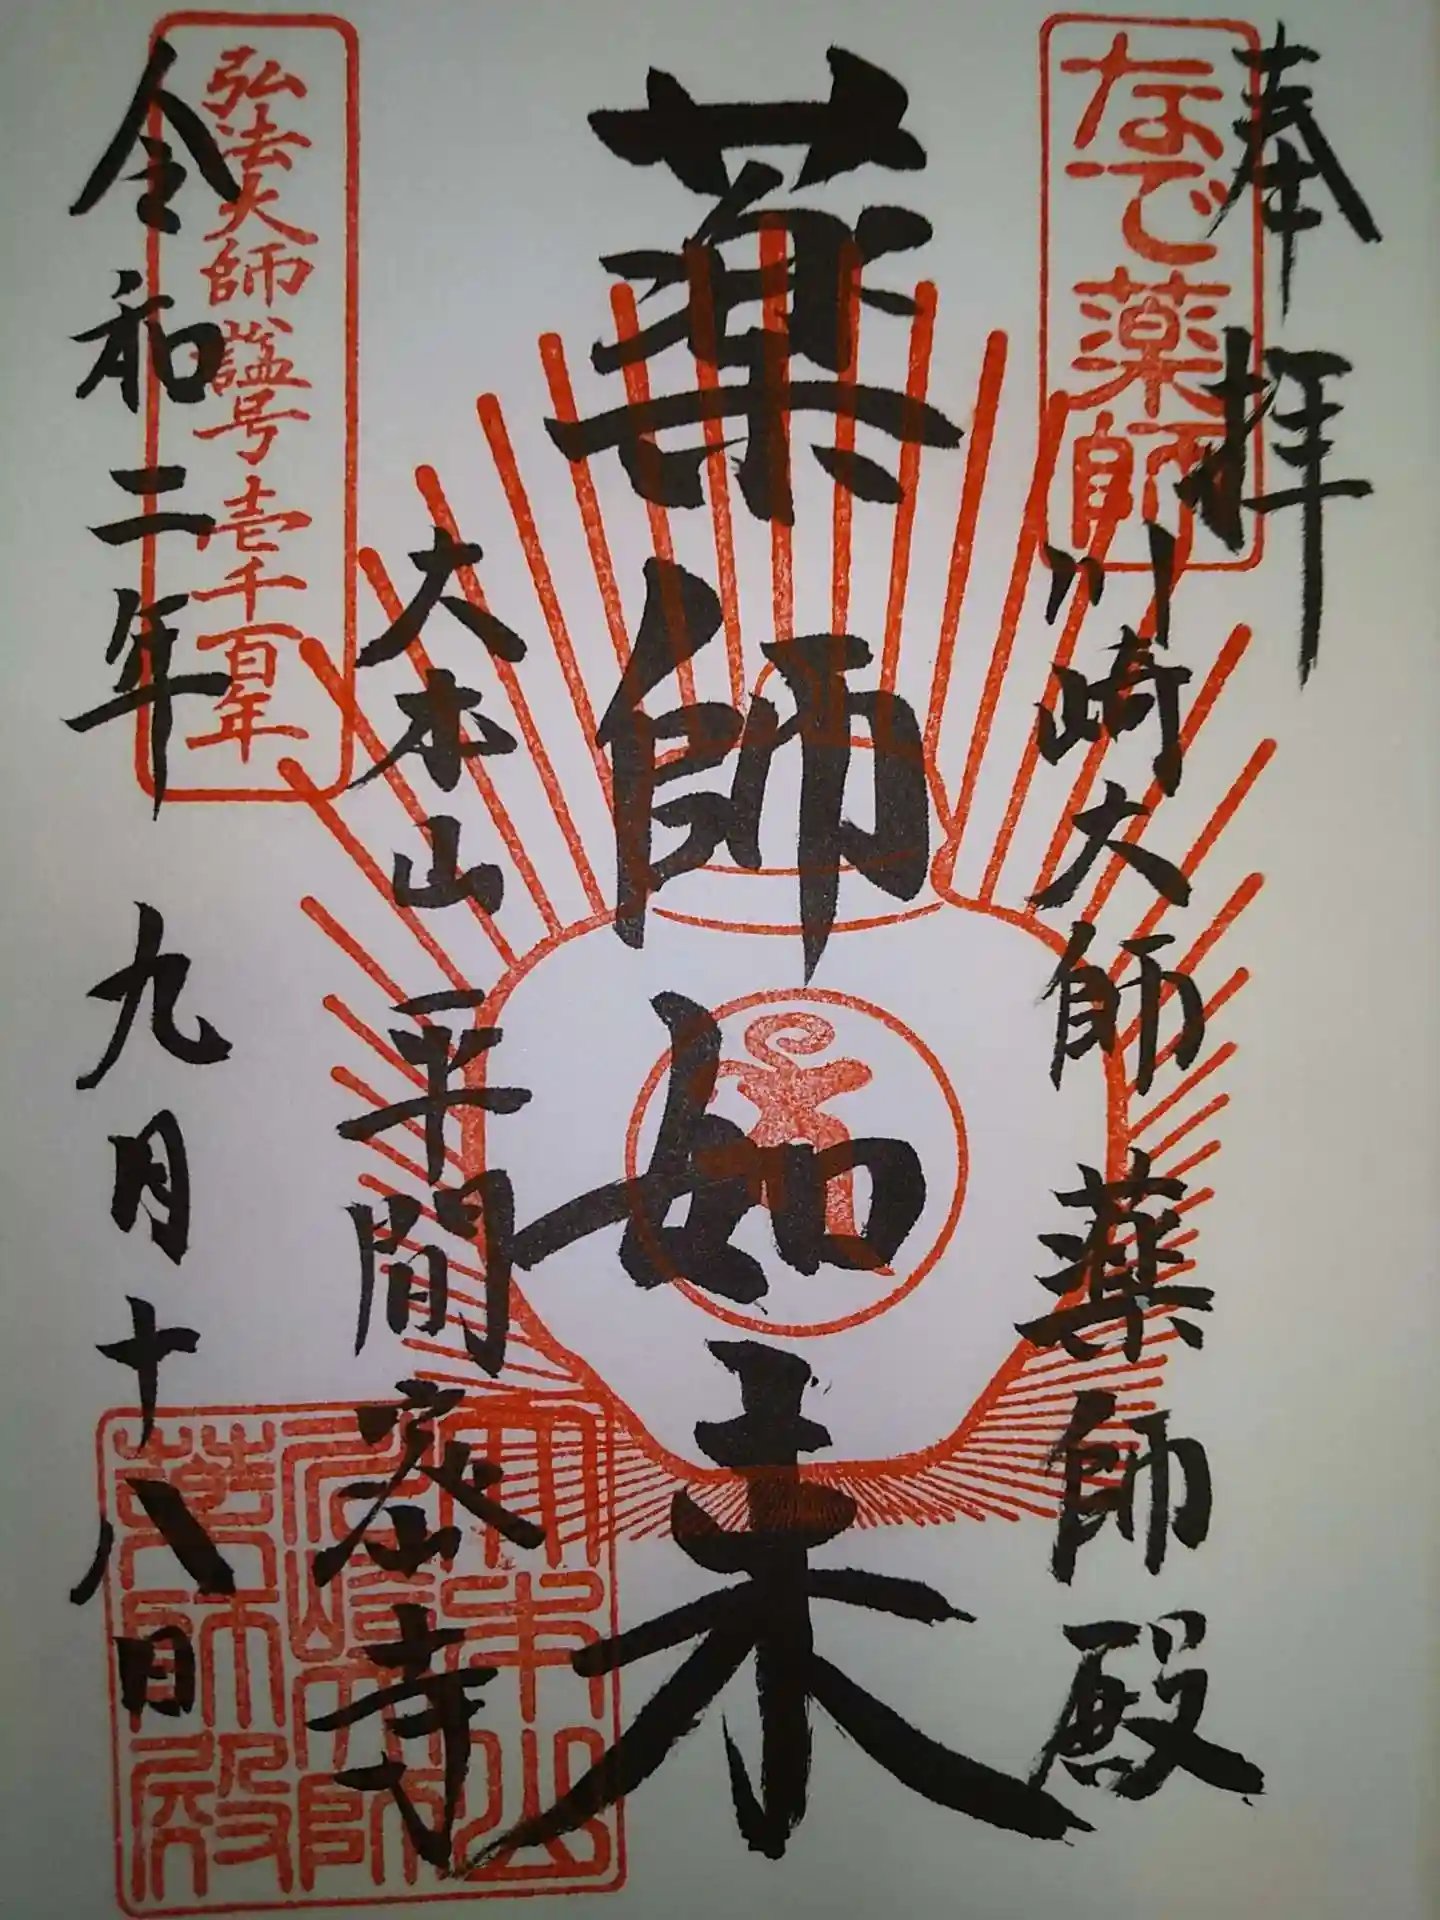 奉拝
なで薬師
川崎大師 薬師殿
薬師如来
大本山 平間寺
弘法大師諡号壱千百年
令和二年 九月十八日
大本山
川崎大師
薬師殿